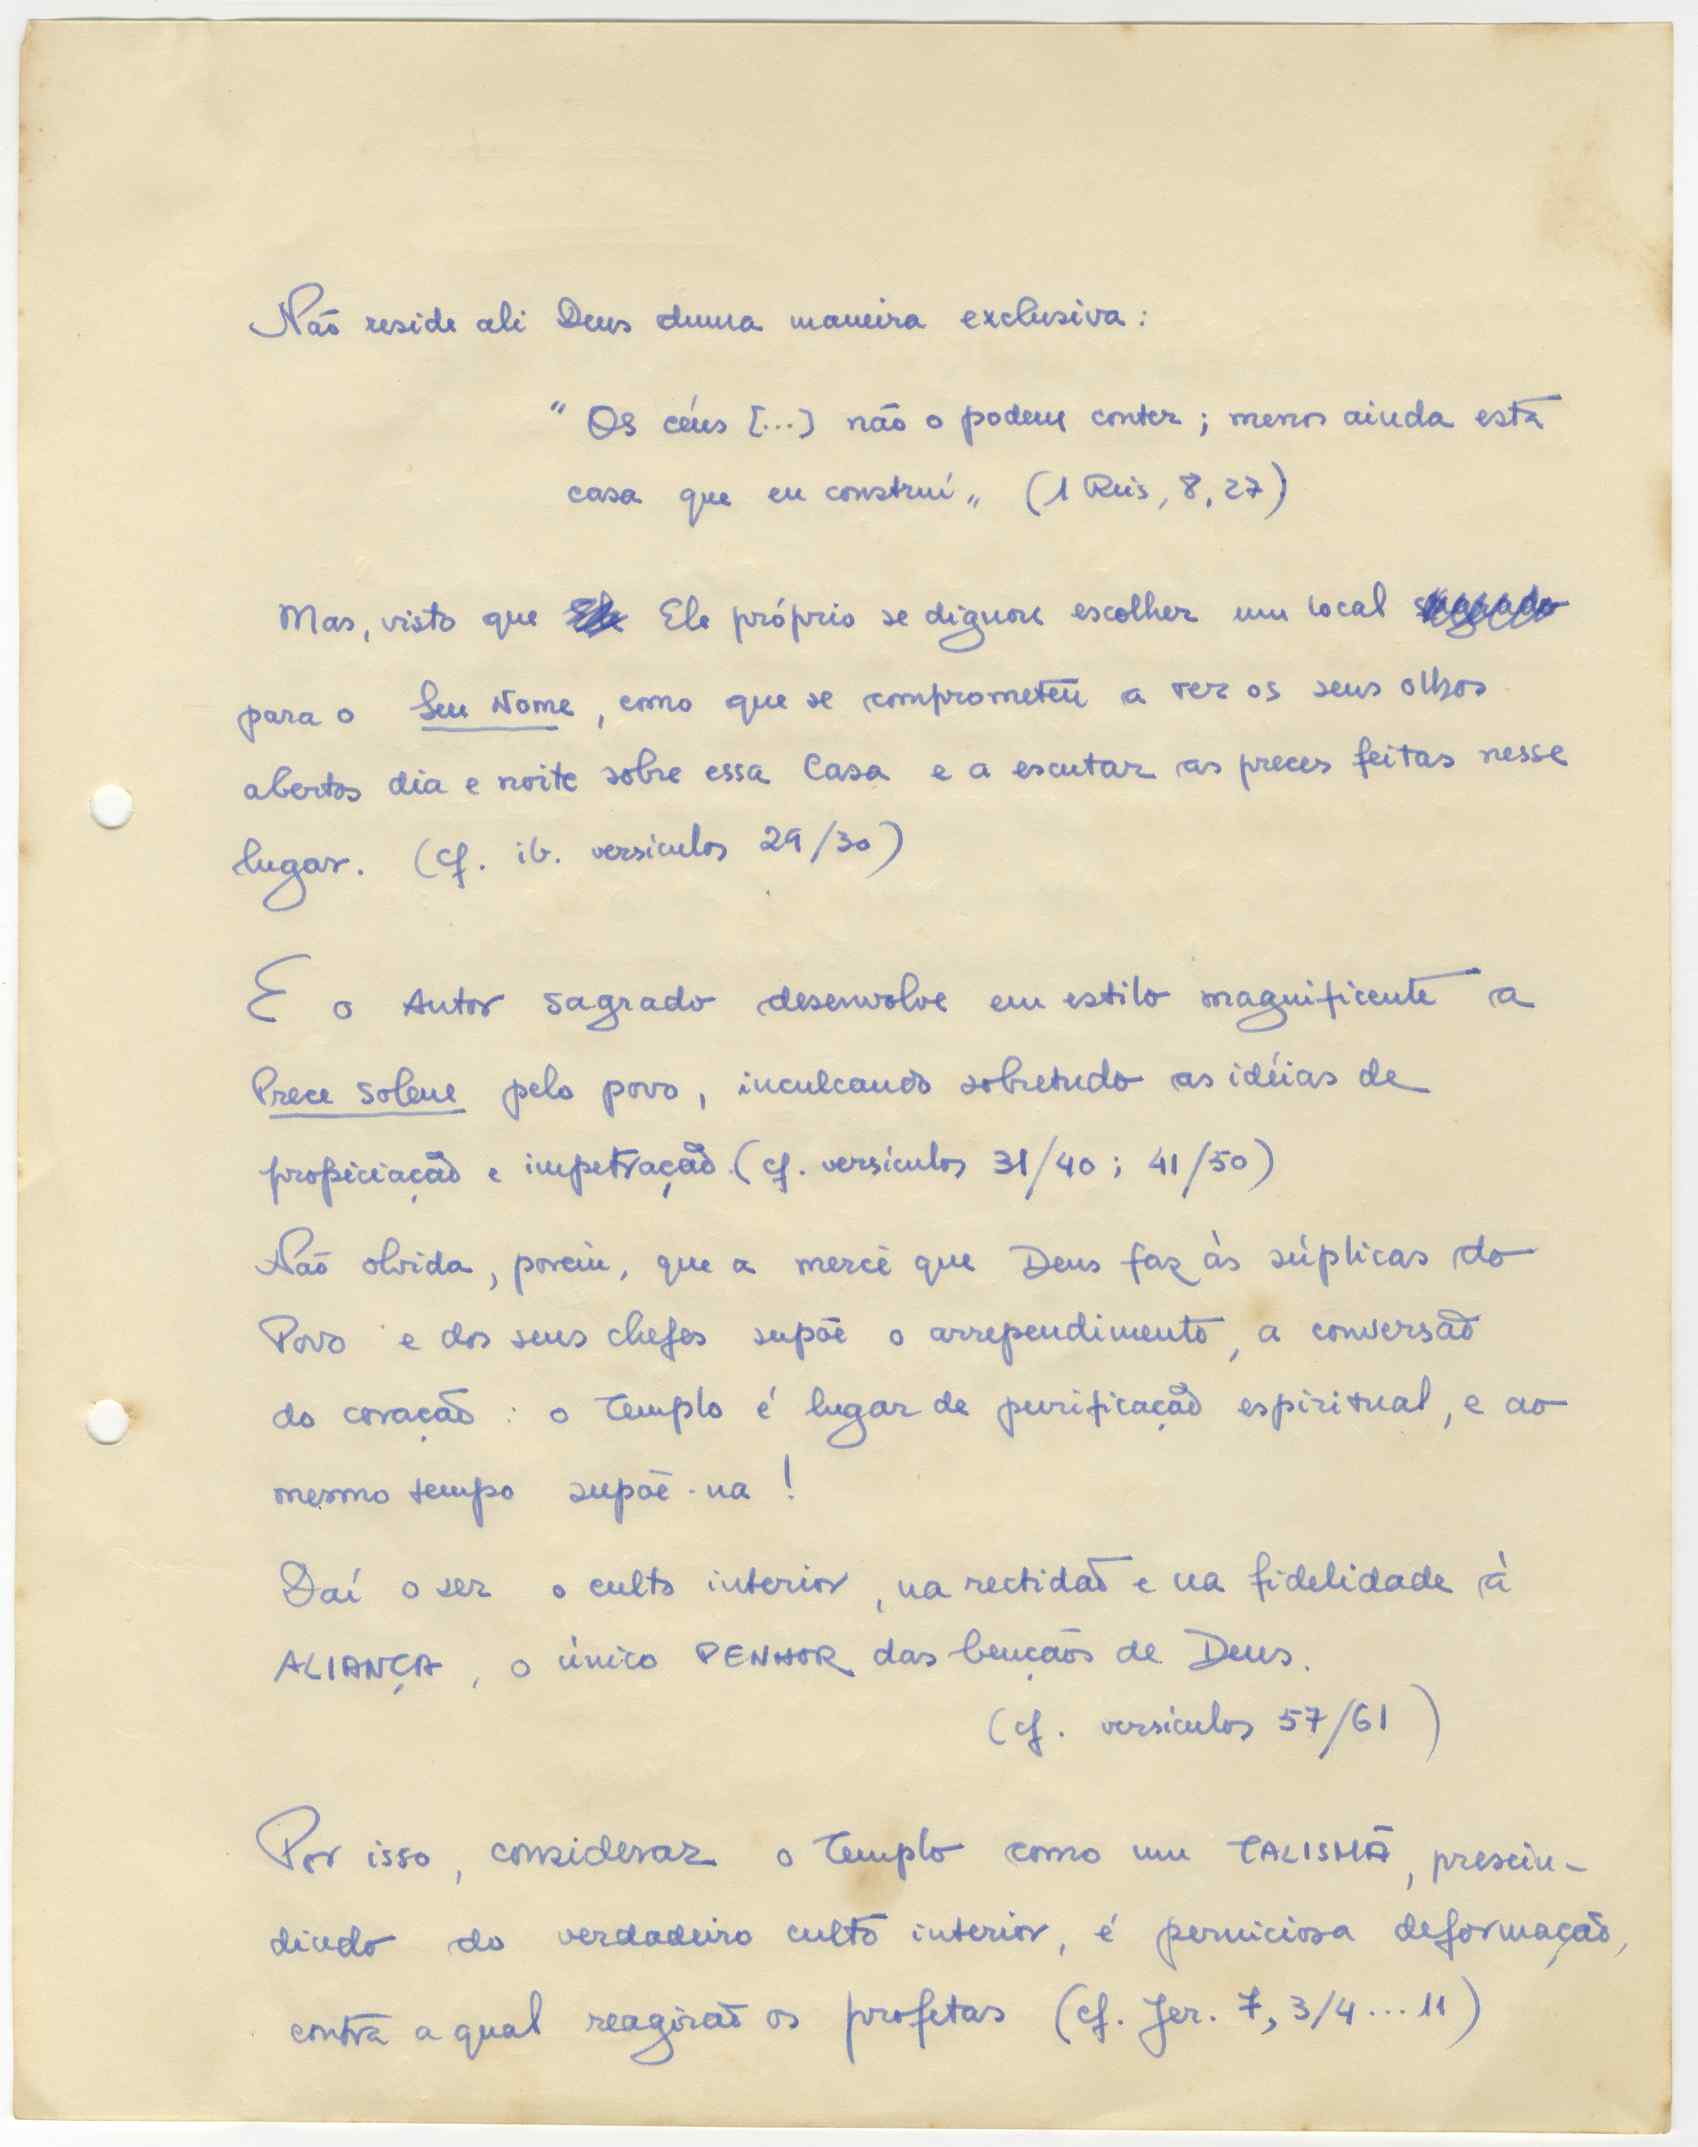 Não reside ali Deus duma maneira exclusiva:
"Os céus [...] não o podem conter; menos ainda esta
casa que eu construí" (1 Reis, 8, 27)
Mas, visto que Ele próprio se dignou escolher um local
para o Seu Nome, como que se comprometeu a ter os seus olhos
abertos dia e noite sobre essa Casa e a escutar as preces feitas nesse
lugar. (cf. ib. versículos 29/30)
E o Autor sagrado desenvolve em estilo magnificente a
Prece solene pelo povo, inculcando sobretudo as idéias de
propiciação e impetração (cf. versículos 31/40; 41/50)
Não olvida, porém, que a mercê que Deus faz às súplicas do
Povo e dos seus chefes supõe o arrependimento, a conversão
do coração: o Templo é lugar de purificação espiritual, e ao
mesmo tempo supõe-na!
Daí o ser o culto interior, na rectidão e na fidelidade à
ALIANÇA, o único PENHOR das bençãos de Deus.
(cf. versículos 57/61)
Por isso, considerar o Templo como um TALISMÃ, prescin-
dindo do verdadeiro culto interior, é perniciosa deformação,
contra a qual reagirão os profetas (cf. Jer. 7, 3/4...11)